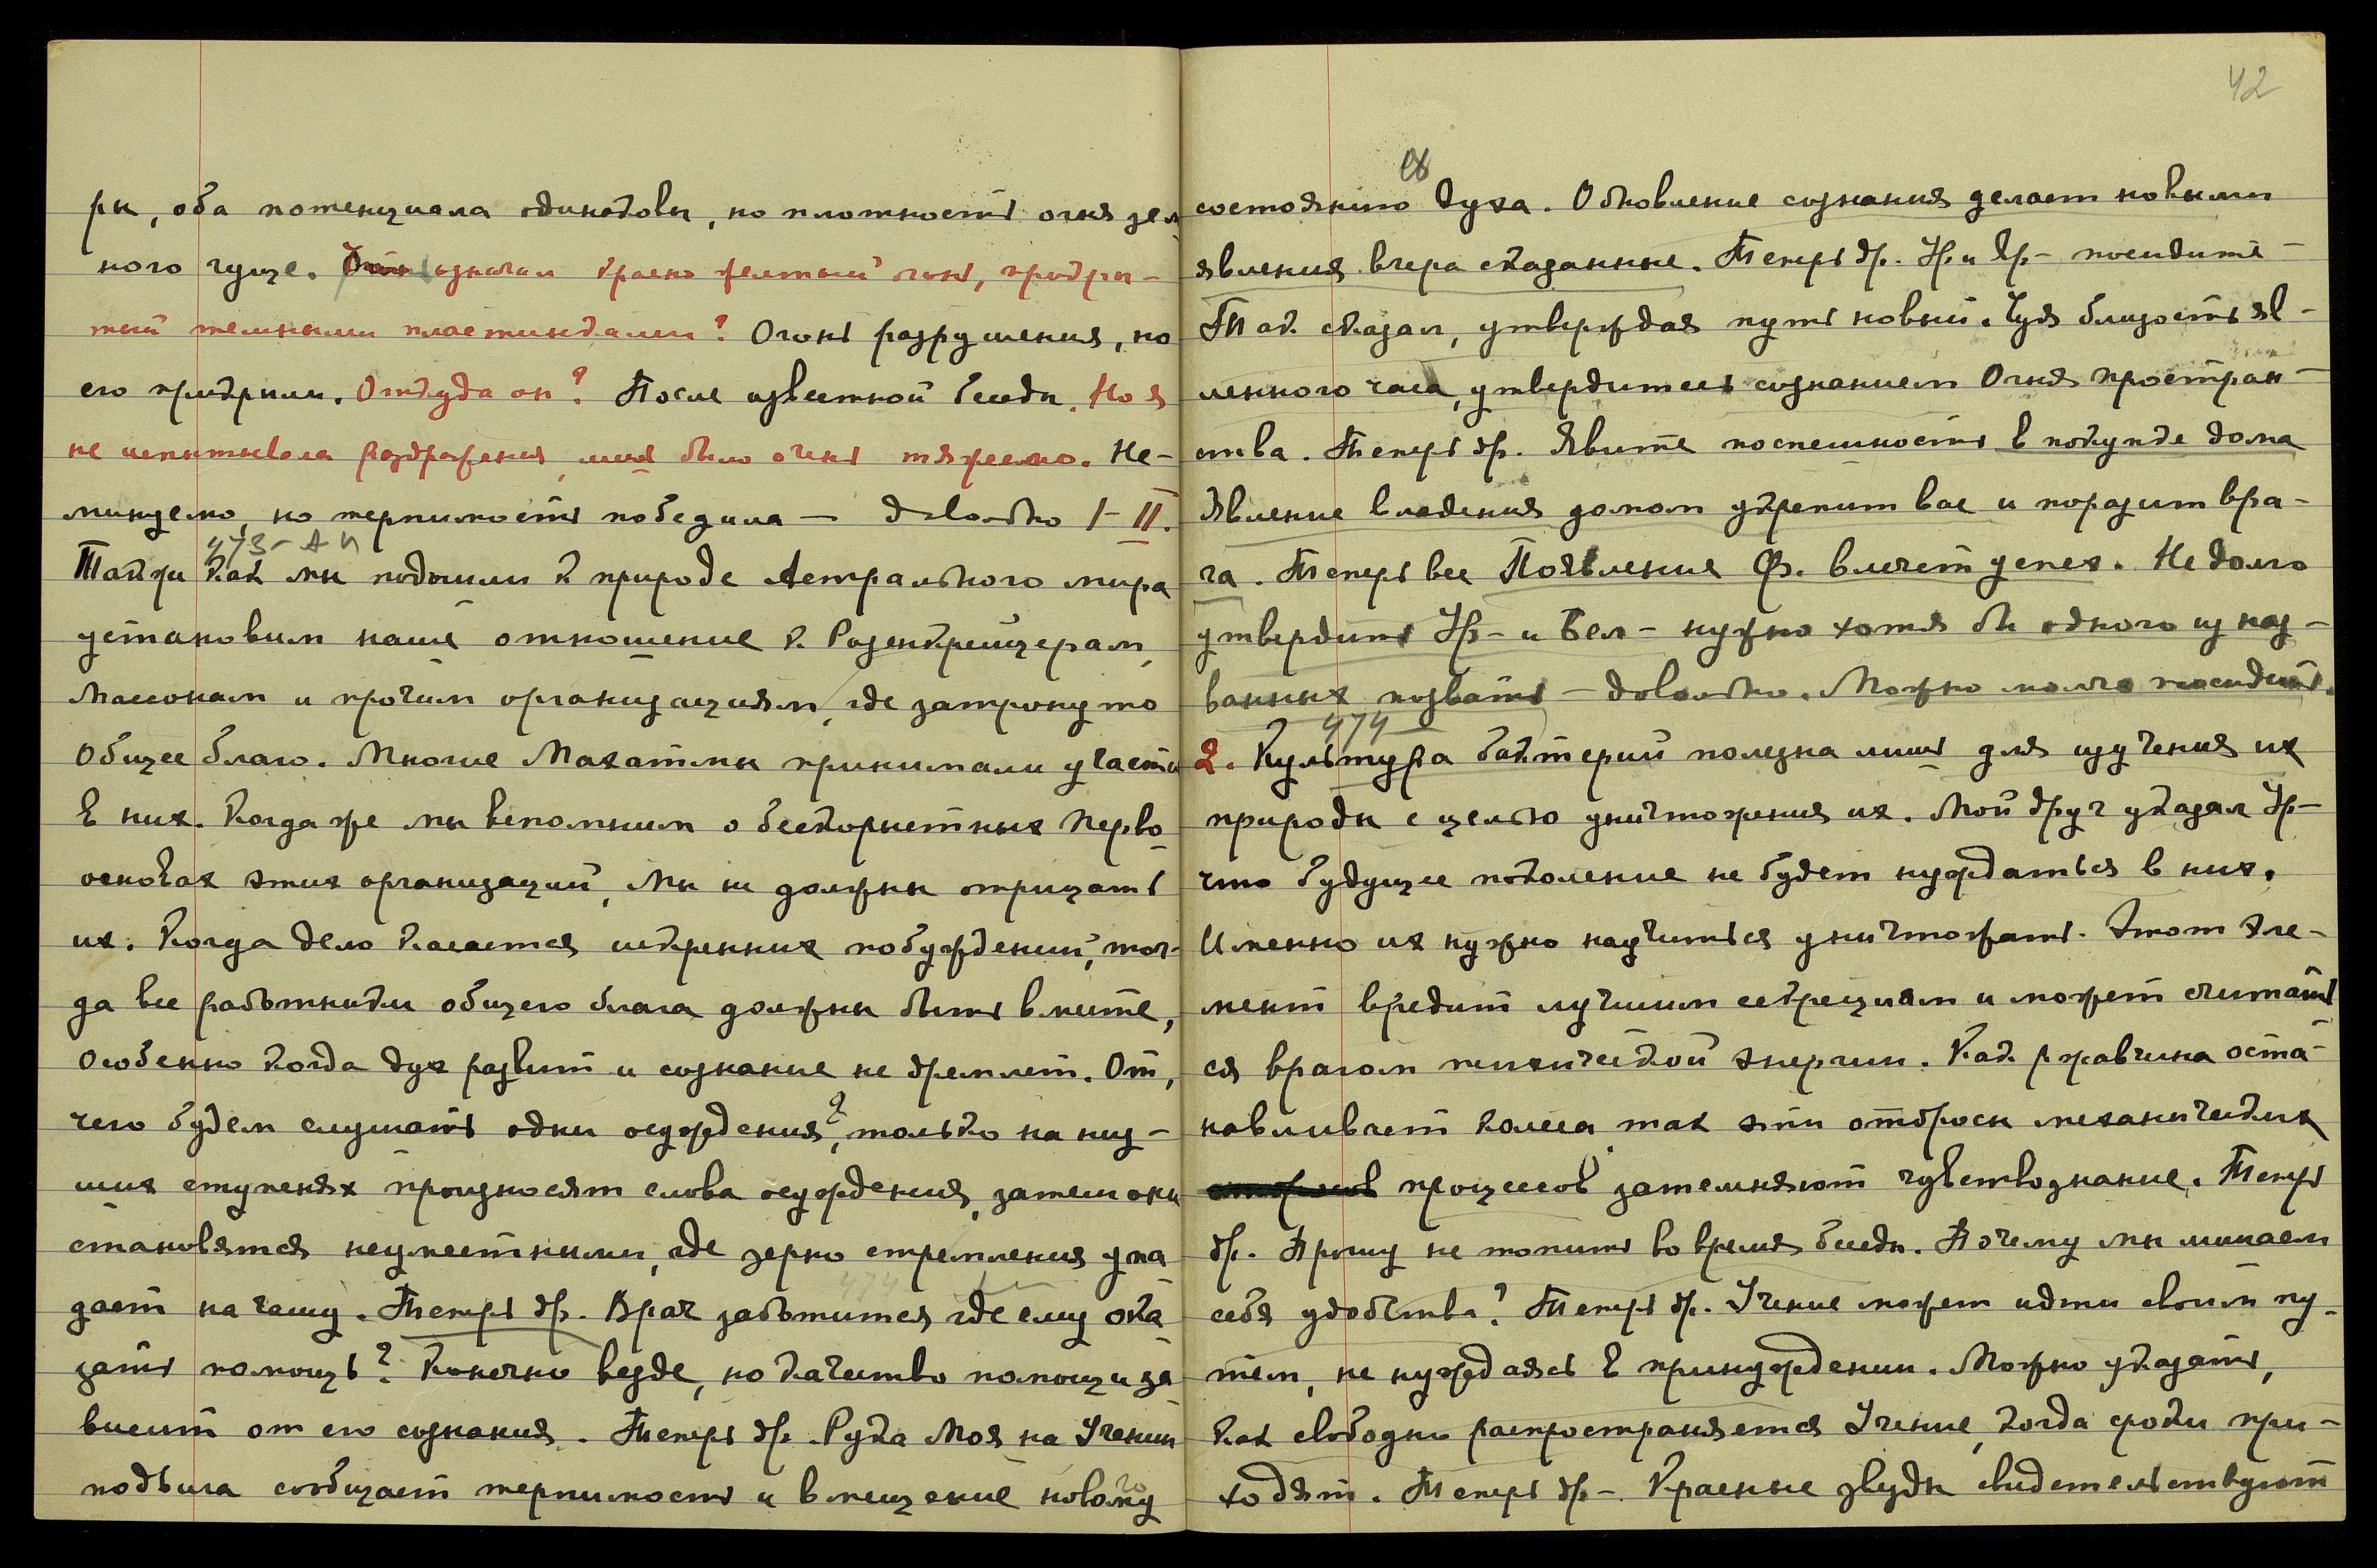 ры, оба потенциала одинаковы, но плотность огня зем
ного гуще. означал красно желтый огонь, прикры-
тый темными пластинками? Огонь разрушения, но
его прикрыли. Откуда он? После известной беседы. Но я
не испытывала раздражения, мне было очень тяжело. Не-
минуемо, но терпимость победила — довольно I–II.
473 – А Й
Также как мы подошли к природе Астрального мира
установим наше отношение к Розенкрейцерам,
Массонам и прочим организациям, где затронуто
Общее благо. Многие Махатмы принимали участие
в них. Когда же мы вспомним о бескорыстных перво
основах этих организаций, мы не должны отрицать
их. Когда дело касается искренних побуждений, тог-
да все работники общего блага должны быть вместе,
Особенно когда дух развит и сознание не дремлет. От,
чего будем слушать одни осуждения?, только на низ-
ших ступенях произносят слова осуждения, затем они
становятся неуместными, где зерно стремления упа
дает на чашу. Теперь др. Врач заботится где ему ока
зать помощь? Конечно везде, но качество помощи за
висит от его сознания. Теперь др. Рука Моя на Учении
подвига сообщает терпимость и вмещение новому
42
состоянию духа. Обновление сознания делает новыми
явления вчера сказанные. Теперь др. Ур. и Яр– посидите –
Так сказал, утверждая путь новый. Чуя близость яв-
ленного часа, утвердитесь сознанием Огня простран-
ства. Теперь др. Явите поспешность в покупке дома
Явление владения домом укрепит вас и поразит вра-
га. Теперь все Появление Ф. влечет успех. Недолго
утвердить Ур– и Бел– нужно хотя бы одного из наз-
ванных позвать – довольно. Можно молча посидеть.
474
2. Культура бактерий полезна лишь для изучения их
природы с целью уничтожения их. Мой друг указал Ур–
что будущее поколение не будет нуждаться в них.
Именно их нужно научиться уничтожать. Этот эле-
мент вредит лучшим секрециям и может считать
ся врагом психической энергии. Как ржавчина оста-
навливает колеса, так эти отбросы механических
процессов затемняют чувствознание. Теперь
др. Прошу не топить во время беседы. Почему мы лишаем
себя удобства? Теперь др. Учение может идти своим пу-
тем, не нуждаясь в принуждении. Можно указать,
как свободно распространяется Учение, когда сроки при-
ходят. Теперь др–. Красные звезды свидетельствуют